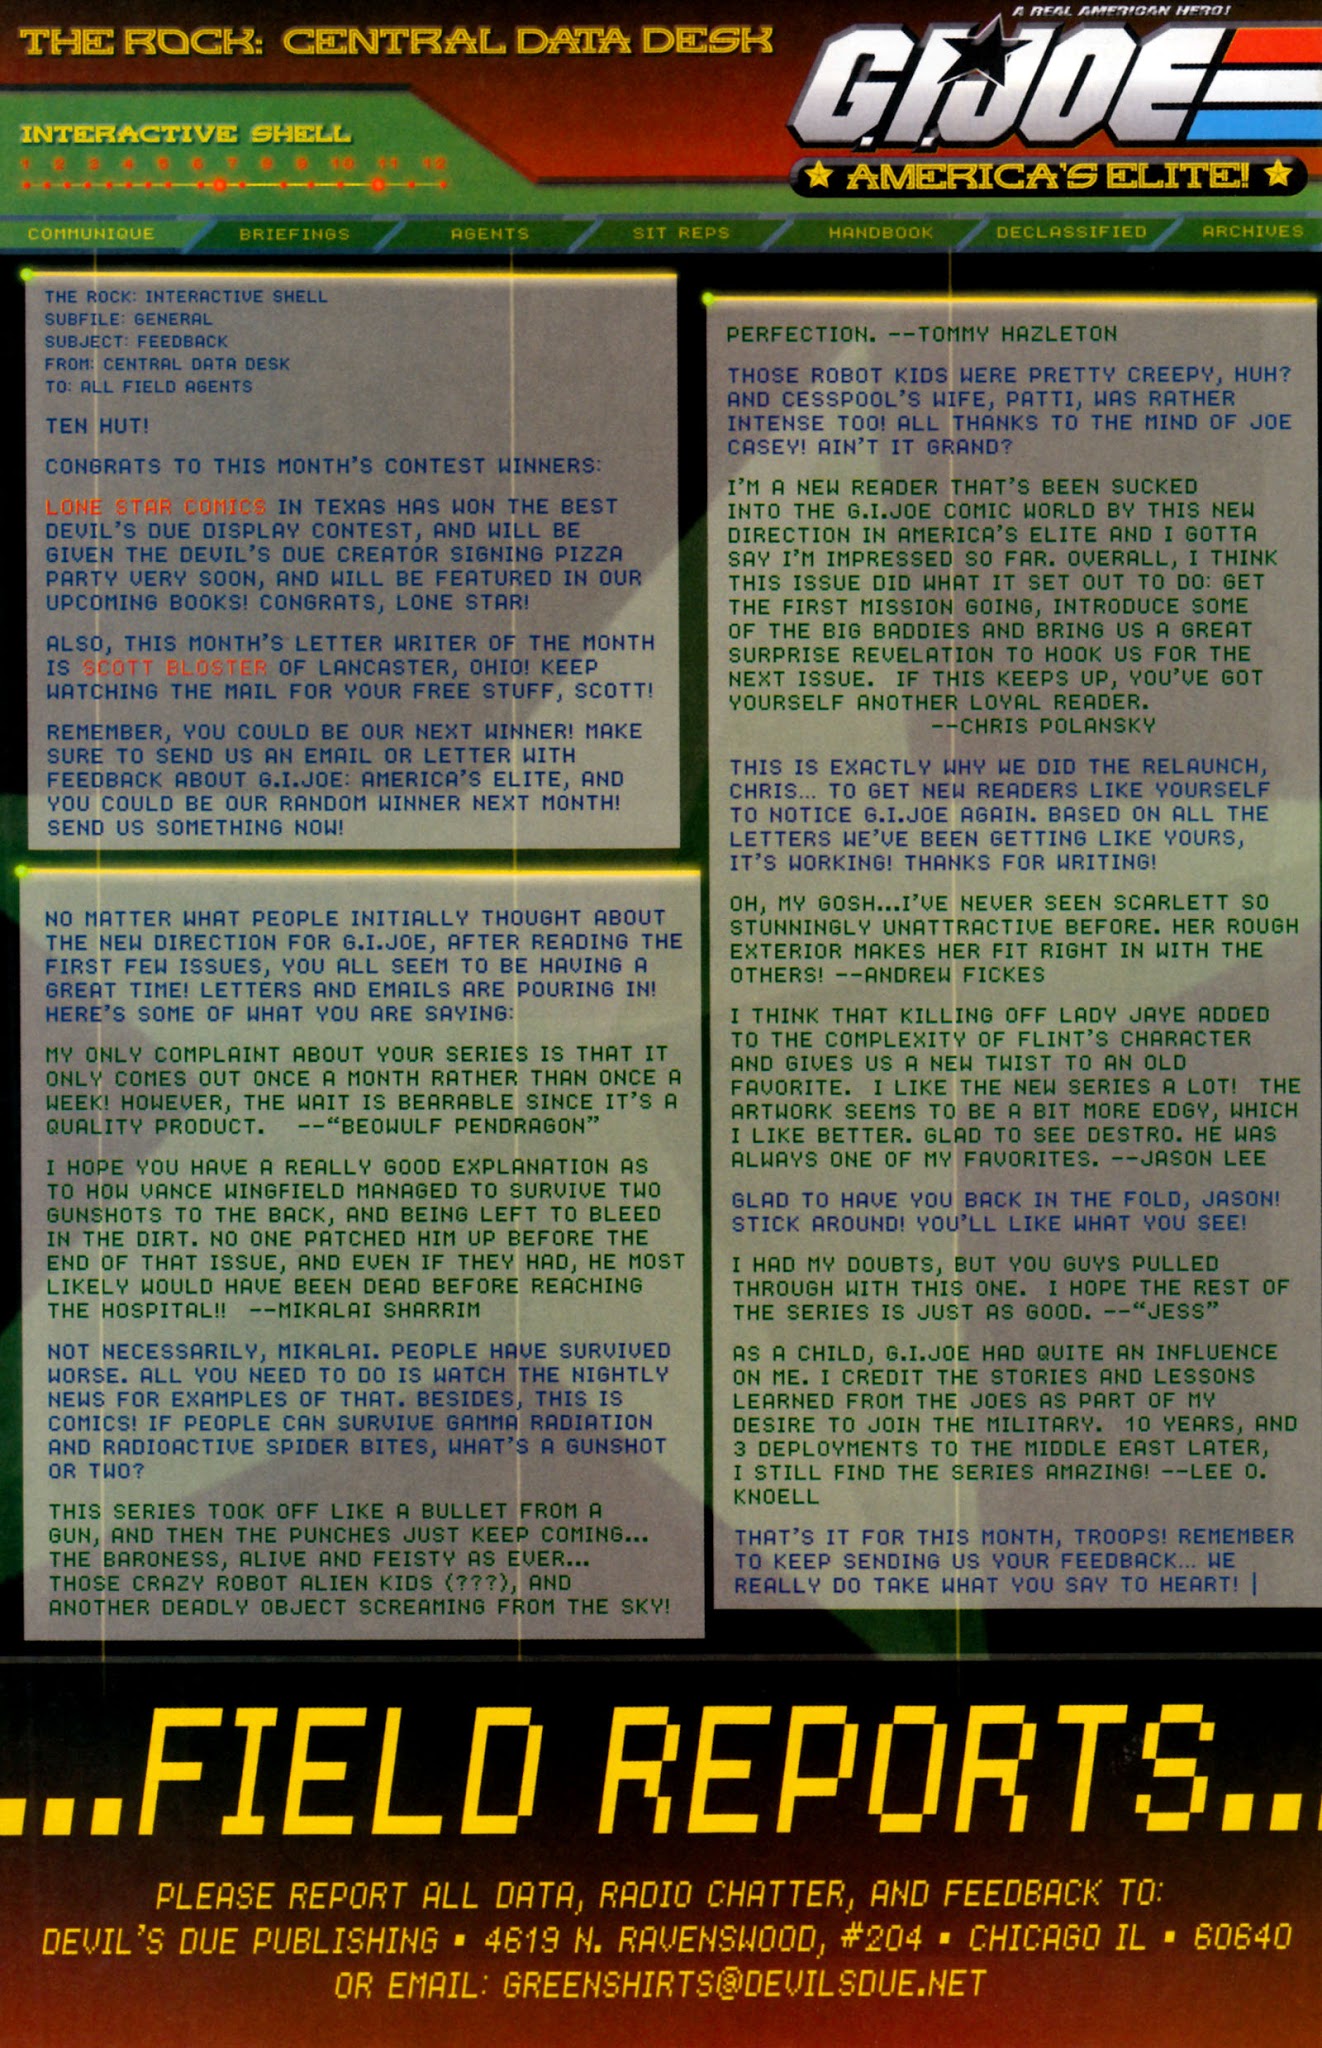 A REAL AMERICAN HERO!
THE ROCK: CENTRAL DATA DESK
G.I.JOE
AMERICA'S ELITE!
INTERACTIVE SHELL
1 2 3 4 5 6 7 8 9 10 11 12
COMMUNIQUE BRIEFINGS AGENTS SIT REPS HANDBOOK DECLASSIFIED ARCHIVES
THE ROCK: INTERACTIVE SHELL
SUBFILE: GENERAL
SUBJECT: FEEDBACK
FROM: CENTRAL DATA DESK
TO: ALL FIELD AGENTS
TEN HUT!
CONGRATS TO THIS MONTH'S CONTEST WINNERS:
LONE STAR COMICS IN TEXAS HAS WON THE BEST
DEVIL'S DUE DISPLAY CONTEST, AND WILL BE
GIVEN THE DEVIL'S DUE CREATOR SIGNING PIZZA
PARTY VERY SOON, AND WILL BE FEATURED IN OUR
UPCOMING BOOKS! CONGRATS, LONE STAR!
ALSO, THIS MONTH'S LETTER WRITER OF THE MONTH
IS SCOTT BLOSTER OF LANCASTER, OHIO! KEEP
WATCHING THE MAIL FOR YOUR FREE STUFF, SCOTT!
REMEMBER, YOU COULD BE OUR NEXT WINNER! MAKE
SURE TO SEND US AN EMAIL OR LETTER WITH
FEEDBACK ABOUT G.I.JOE: AMERICA'S ELITE, AND
YOU COULD BE OUR RANDOM WINNER NEXT MONTH!
SEND US SOMETHING NOW!
NO MATTER WHAT PEOPLE INITIALLY THOUGHT ABOUT
THE NEW DIRECTION FOR G.I.JOE, AFTER READING THE
FIRST FEW ISSUES, YOU ALL SEEM TO BE HAVING A
GREAT TIME! LETTERS AND EMAILS ARE POURING IN!
HERE'S SOME OF WHAT YOU ARE SAYING:
MY ONLY COMPLAINT ABOUT YOUR SERIES IS THAT IT
ONLY COMES OUT ONCE A MONTH RATHER THAN ONCE A
WEEK! HOWEVER, THE WAIT IS BEARABLE SINCE IT'S A
QUALITY PRODUCT. --"BEOWULF PENDRAGON"
I HOPE YOU HAVE A REALLY GOOD EXPLANATION AS
TO HOW VANCE WINGFIELD MANAGED TO SURVIVE TWO
GUNSHOTS TO THE BACK, AND BEING LEFT TO BLEED
IN THE DIRT. NO ONE PATCHED HIM UP BEFORE THE
END OF THAT ISSUE, AND EVEN IF THEY HAD, HE MOST
LIKELY WOULD HAVE BEEN DEAD BEFORE REACHING
THE HOSPITAL!! --MIKALAI SHARRIM
NOT NECESSARILY, MIKALAI. PEOPLE HAVE SURVIVED
WORSE. ALL YOU NEED TO DO IS WATCH THE NIGHTLY
NEWS FOR EXAMPLES OF THAT. BESIDES, THIS IS
COMICS! IF PEOPLE CAN SURVIVE GAMMA RADIATION
AND RADIOACTIVE SPIDER BITES, WHAT'S A GUNSHOT
OR TWO?
THIS SERIES TOOK OFF LIKE A BULLET FROM A
GUN, AND THEN THE PUNCHES JUST KEEP COMING...
THE BARONESS, ALIVE AND FEISTY AS EVER...
THOSE CRAZY ROBOT ALIEN KIDS (???), AND
ANOTHER DEADLY OBJECT SCREAMING FROM THE SKY!
PERFECTION. --TOMMY HAZLETON
THOSE ROBOT KIDS WERE PRETTY CREEPY, HUH?
AND CESSPOOL'S WIFE, PATTI, WAS RATHER
INTENSE TOO! ALL THANKS TO THE MIND OF JOE
CASEY! AIN'T IT GRAND?
I'M A NEW READER THAT'S BEEN SUCKED
INTO THE G.I.JOE COMIC WORLD BY THIS NEW
DIRECTION IN AMERICA'S ELITE AND I GOTTA
SAY I'M IMPRESSED SO FAR. OVERALL, I THINK
THIS ISSUE DID WHAT IT SET OUT TO DO: GET
THE FIRST MISSION GOING, INTRODUCE SOME
OF THE BIG BADDIES AND BRING US A GREAT
SURPRISE REVELATION TO HOOK US FOR THE
NEXT ISSUE. IF THIS KEEPS UP, YOU'VE GOT
YOURSELF ANOTHER LOYAL READER.
--CHRIS POLANSKY
THIS IS EXACTLY WHY WE DID THE RELAUNCH,
CHRIS... TO GET NEW READERS LIKE YOURSELF
TO NOTICE G.I.JOE AGAIN. BASED ON ALL THE
LETTERS WE'VE BEEN GETTING LIKE YOURS,
IT'S WORKING! THANKS FOR WRITING!
OH, MY GOSH...I'VE NEVER SEEN SCARLETT SO
STUNNINGLY UNATTRACTIVE BEFORE. HER ROUGH
EXTERIOR MAKES HER FIT RIGHT IN WITH THE
OTHERS! --ANDREW FICKES
I THINK THAT KILLING OFF LADY JAYE ADDED
TO THE COMPLEXITY OF FLINT'S CHARACTER
AND GIVES US A NEW TWIST TO AN OLD
FAVORITE. I LIKE THE NEW SERIES A LOT! THE
ARTWORK SEEMS TO BE A BIT MORE EDGY, WHICH
I LIKE BETTER. GLAD TO SEE DESTRO. HE WAS
ALWAYS ONE OF MY FAVORITES. --JASON LEE
GLAD TO HAVE YOU BACK IN THE FOLD, JASON!
STICK AROUND! YOU'LL LIKE WHAT YOU SEE!
I HAD MY DOUBTS, BUT YOU GUYS PULLED
THROUGH WITH THIS ONE. I HOPE THE REST OF
THE SERIES IS JUST AS GOOD. --"JESS"
AS A CHILD, G.I.JOE HAD QUITE AN INFLUENCE
ON ME. I CREDIT THE STORIES AND LESSONS
LEARNED FROM THE JOES AS PART OF MY
DESIRE TO JOIN THE MILITARY. 10 YEARS, AND
3 DEPLOYMENTS TO THE MIDDLE EAST LATER,
I STILL FIND THE SERIES AMAZING! --LEE O.
KNOELL
THAT'S IT FOR THIS MONTH, TROOPS! REMEMBER
TO KEEP SENDING US YOUR FEEDBACK... WE
REALLY DO TAKE WHAT YOU SAY TO HEART! |
...FIELD REPORTS...
PLEASE REPORT ALL DATA, RADIO CHATTER, AND FEEDBACK TO:
DEVIL'S DUE PUBLISHING ▪ 4619 N. RAVENSWOOD, #204 ▪ CHICAGO IL ▪ 60640
OR EMAIL: GREENSHIRTS@DEVILSDUE.NET